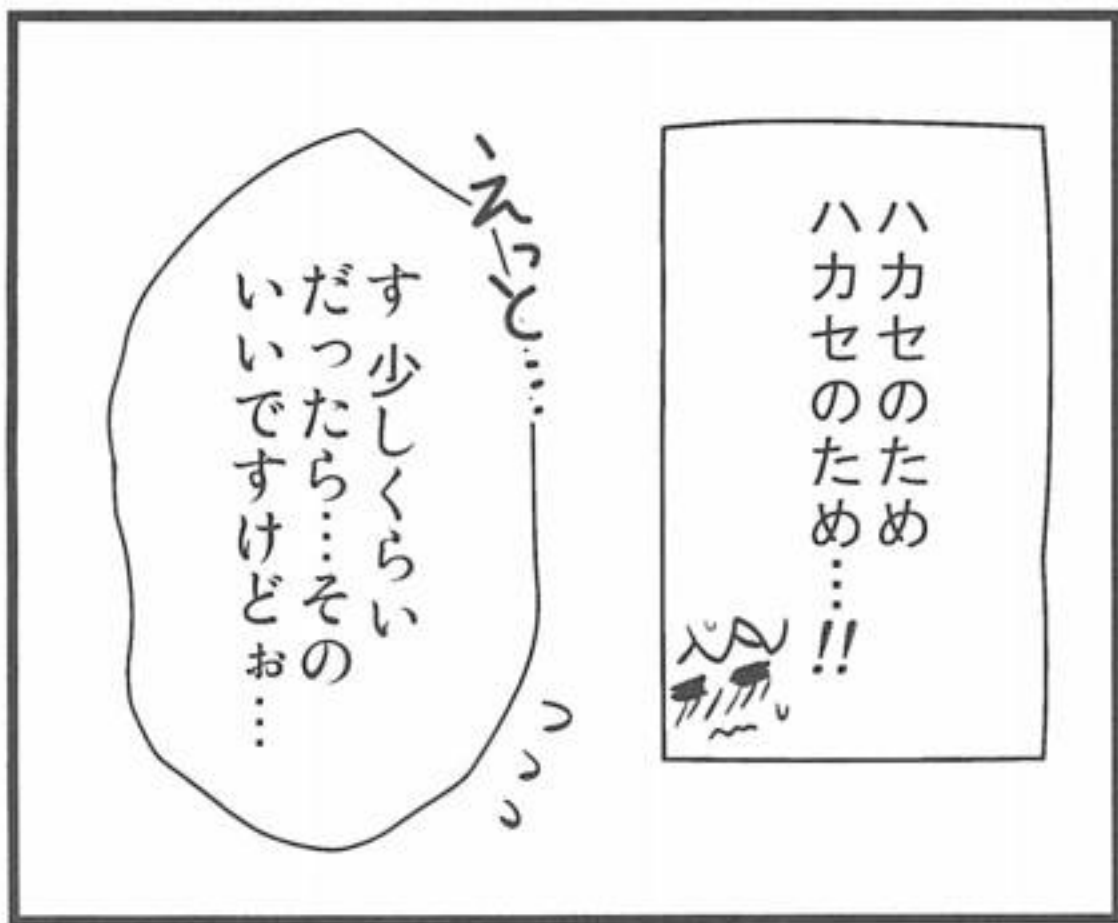 ハカセのため
ハカセのため…!!
えっと…
す 少しくらい
だったら…その
いいですけどぉ…